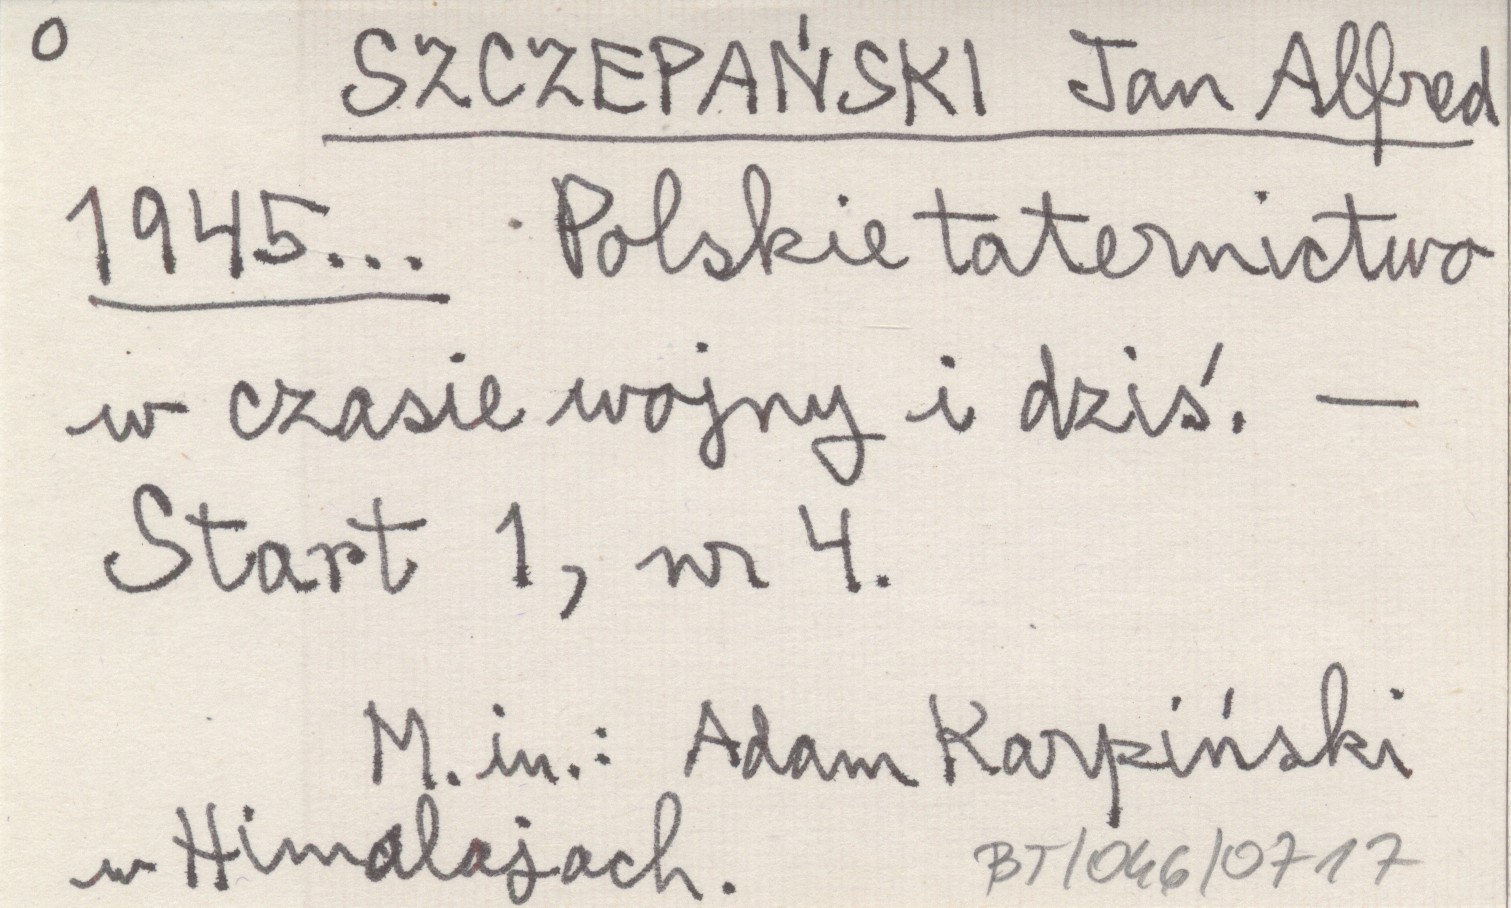 o SZCZEPAŃSKI Jan Alfred
1945... Polskie taternictwo
w czasie wojny i dziś. —
Start 1, nr 4.
M. in.: Adam Karpiński
w Himalajach.
BT/046/0717